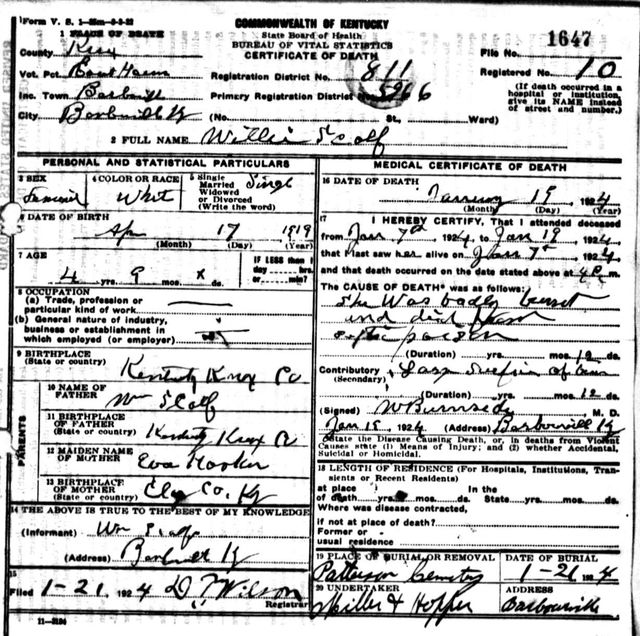 Form V. S. 1-25m-9-3-22
COMMONWEALTH OF KENTUCKY
State Board of Health
BUREAU OF VITAL STATISTICS
CERTIFICATE OF DEATH
1 PLACE OF DEATH
County Knox
File No. 1647
Vot. Pct
Registration District No. 811
Registered No. 10
Inc. Town Barbville
Primary Registration District No. 5966
(If death occurred in a hospital or institution, give its NAME instead of street and number.)
City Barbville Ky (No. St., Ward)
2 FULL NAME Willie Scalf
PERSONAL AND STATISTICAL PARTICULARS
3 SEX
4 COLOR OR RACE
5 Single Married Widowed or Divorced (Write the word)
Whit
Singl
6 DATE OF BIRTH
Apr 17 1919
(Month) (Day) (Year)
7 AGE
4 yrs. 9 mos. x ds.
IF LESS than 1 day....hrs. or....min?
8 OCCUPATION
(a) Trade, profession or particular kind of work
(b) General nature of industry, business or establishment in which employed (or employer)
9 BIRTHPLACE
(State or country)
Kentucky Knox Co
PARENTS
10 NAME OF FATHER
Wm Scalf
11 BIRTHPLACE OF FATHER
(State or country)
Kentucky Knox Co
12 MAIDEN NAME OF MOTHER
Eva Hooker
13 BIRTHPLACE OF MOTHER
(State or country)
Clay Co, Ky
14 THE ABOVE IS TRUE TO THE BEST OF MY KNOWLEDGE
(Informant) Wm Scalf
(Address)
15
Filed 1-21, 1924 D. Wilson
Registrar
11-3184
MEDICAL CERTIFICATE OF DEATH
16 DATE OF DEATH
19 1924
(Month) (Day) (Year)
17 I HEREBY CERTIFY, That I attended deceased
from Jan 7th 1924, to Jan 19, 1924,
that I last saw her alive on Jan 7th 1924
and that death occurred on the date stated above at 4 P. m.
The CAUSE OF DEATH* was as follows:
She Was badly burnt
and died from
(Duration) yrs. mos. 12 ds.
Contributory
(Secondary)
(Duration) yrs. mos. 12 ds.
(Signed) W Burnside M. D.
(Address) Barbourvill Ky
*State the Disease Causing Death, or, in deaths from Violent Causes state (1) Means of Injury; and (2) whether Accidental, Suicidal or Homicidal.
18 LENGTH OF RESIDENCE (For Hospitals, Institutions, Transients or Recent Residents)
At place of death yrs. mos. ds. In the State yrs. mos. ds.
Where was disease contracted,
if not at place of death?
Former or usual residence
19 PLACE OF BURIAL OR REMOVAL
DATE OF BURIAL
Patterson Cemetery
1-21 1924
20 UNDERTAKER
ADDRESS
Miller & Hopper
Barbourville